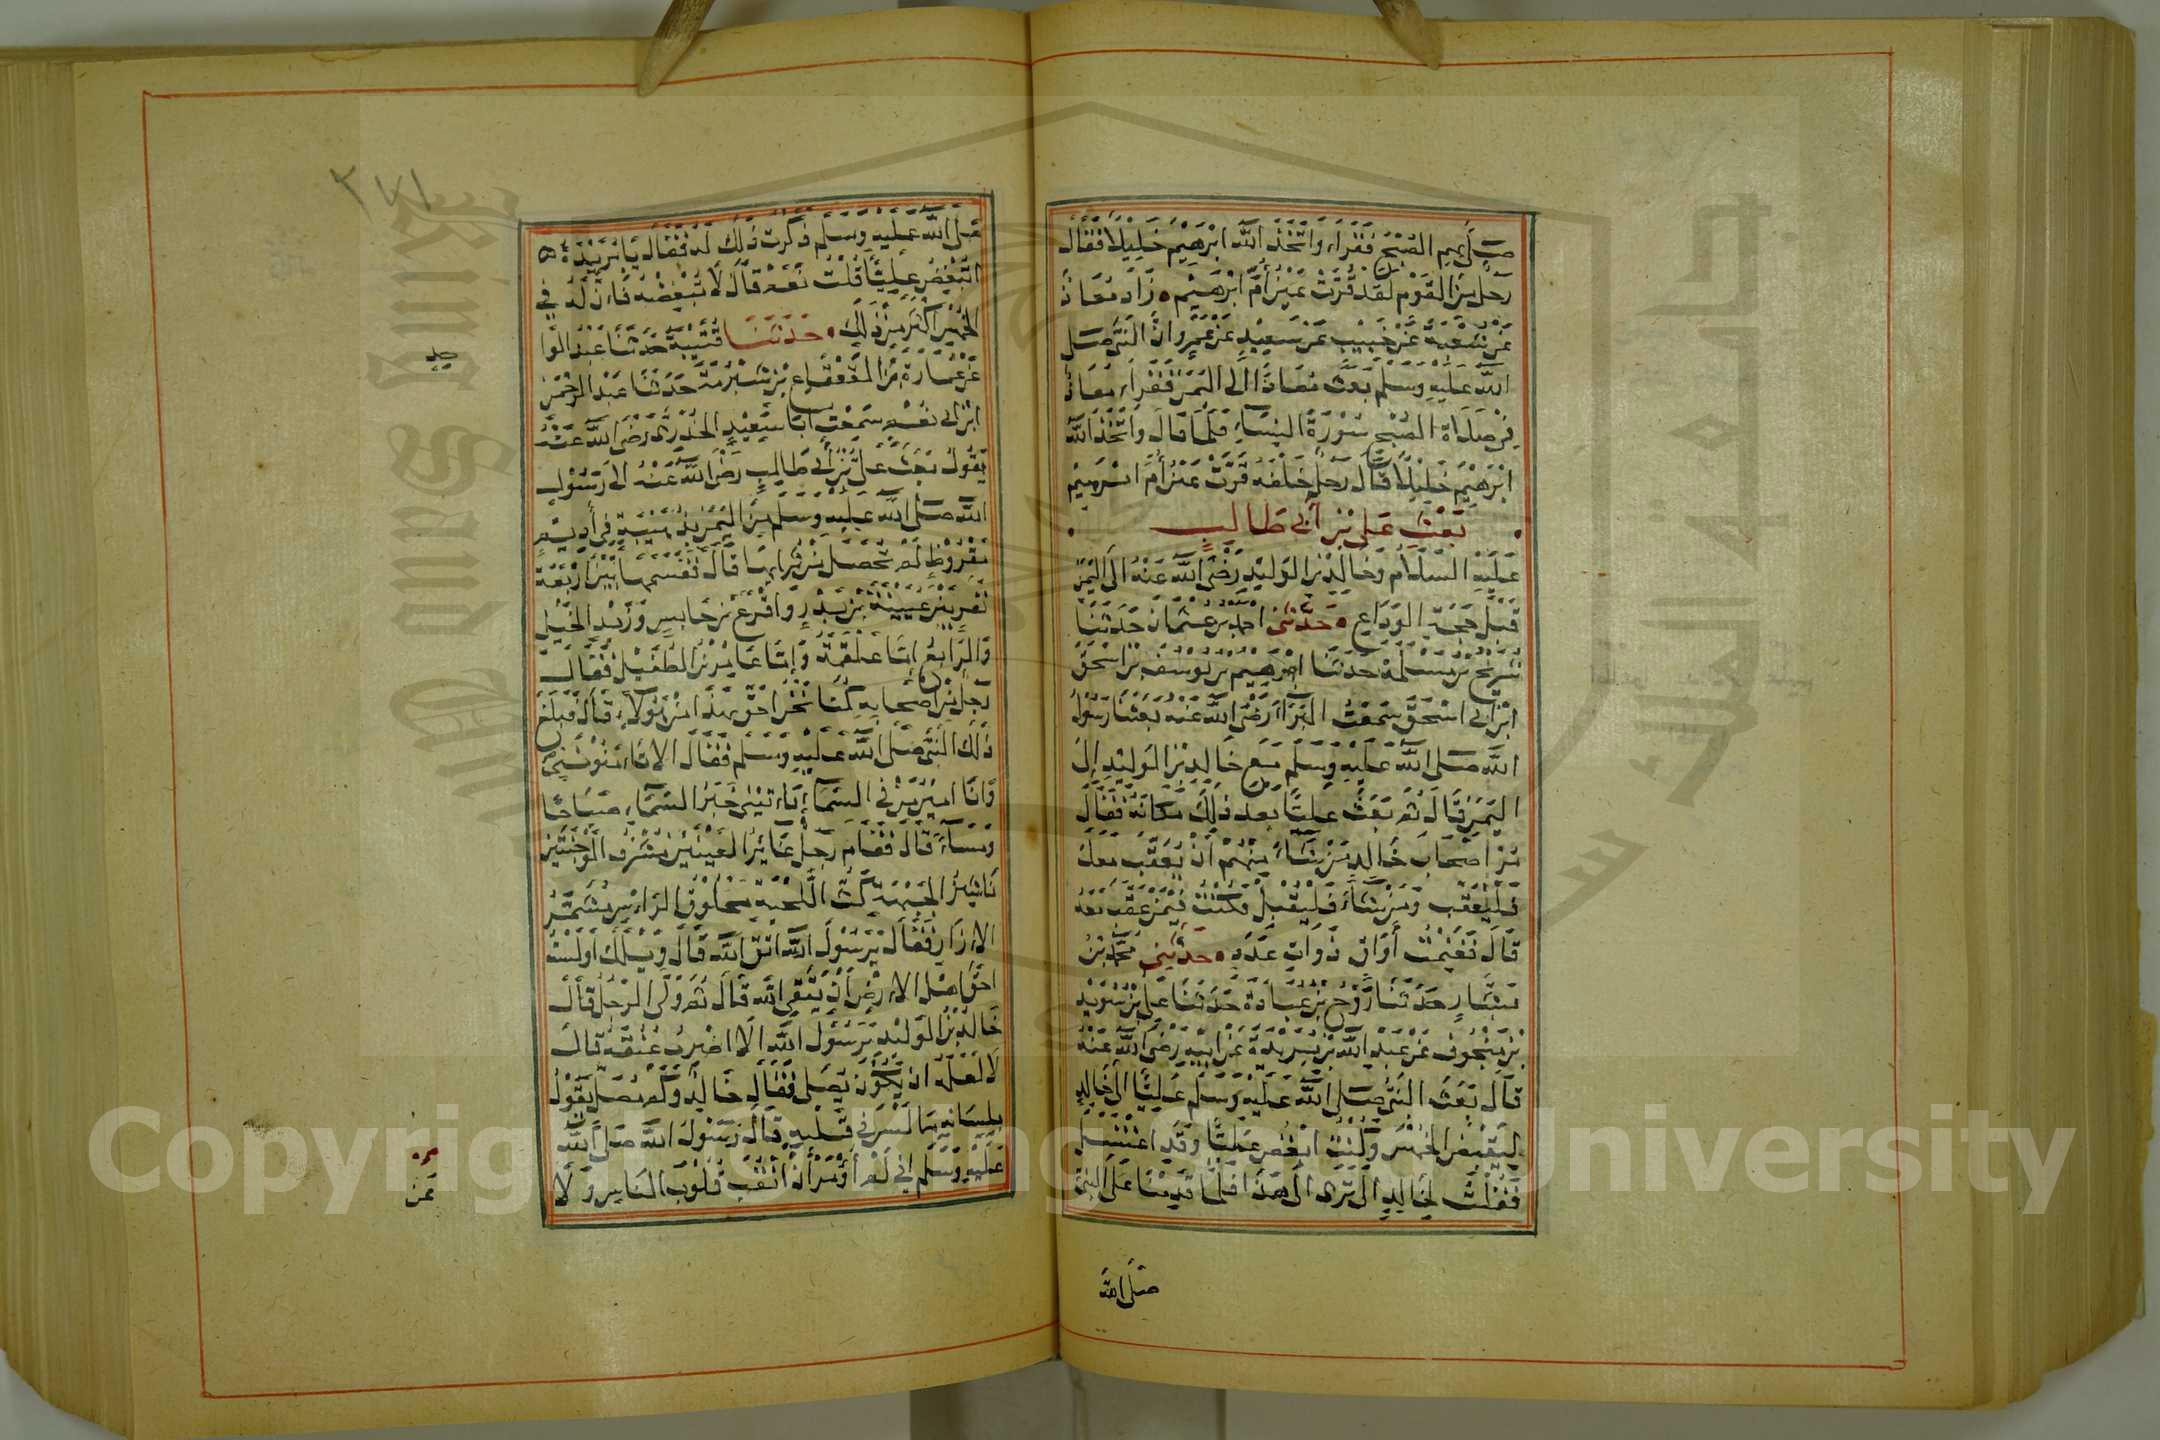 صَلّى بهم الصُّبْحَ فَقَرَأ وَاتَّخَذَ اللَّهُ ابْرَهِيمَ خَلِيلًا فَقَالَ
رَجُلٌ مِنَ القَوْمِ لَقَدْ قَرَّتْ عَيْنُ أُمِّ ابْرَهِيمَ • زَادَ مُعَاذٌ
عَنْ شُعْبَةَ عَنْ حَبِيبٍ عَنْ سَعِيدٍ عَنْ عَمْرٍو انَّ النَّبِيَّ صَلَّى
اللَّهُ عَلَيْهِ وَسَلَّمَ بَعَثَ مُعَاذًا الَى اليَمَنِ فَقَرَأ مُعَاذٌ
فِي صَلَاةِ الصُّبْحِ سُوْرَةَ النِّسَاءِ فَلَمَّا قَالَ وَاتَّخَذَ اللَّهُ
ابْرَهِيمَ خَلِيلًا قَالَ رَجُلٌ خَلْفَهُ قَرَّتْ عَيْنُ أُمِّ ابْرَهِيْمَ
• بَعْثُ عَلِي بْنِ أَبي طَالِبٍ •
عَلَيْهِ السَّلَامُ وَخَالِدِ بْنِ الوَلِيْدِ رَضِيَ اللَّهُ عَنْهُ الَى اليَمَنِ
قَبْلَ حَجَّةِ الوَدَاعِ • حَدَّثَنِي احمَدُ بْنُ عُثْمَانَ حَدَّثَنَا
شُرَيْحُ بْنُ مَسْلَمَةَ حَدَّثَنَا ابْرَهِيْمُ بْنُ يُوسُفَ بْنِ اسْحَقَ
ابْنِ أَبِي اسْحَقَ سَمِعْتُ البَرَاءَ رَضِيَ اللَّهُ عَنْهُ بَعَثَنَا رَسُوْلُ
اللَّهِ صَلَّى اللَّهُ عَلَيْهِ وَسَلَّمَ مَعَ خَالِدِ بْنِ الوَلِيْدِ إلَى
اليَمَنِ قَالَ ثُمَّ بَعَثَ عَلِيًّا بَعدَ ذَلِكَ مَكَانَهُ فَقَالَ
مُرْ اصْحَابَ خَالِدٍ مَنْ شَاءَ مِنْهُمْ انْ يُعَقِّبَ مَعَكَ
فَلْيُعَقِّبْ وَمَنْ شَاءَ فَلْيُقْبِلْ فَكُنْتُ فِيْمَنْ عَقَّبَ مَعَهُ
قَالَ فَغَنِمْتُ أَوَاقٍ ذَوَاتِ عَدَدٍ • حَدَّثَنِي مُحَمَّدُ بْنُ
بَشَّارٍ حَدَّثَنَا رَوْحُ بْنُ عُبَادَةَ حَدَّثَنَا عَلِيُّ بْنُ سُوَيْدِ
بْنِ مَنْجُوفٍ عَنْ عَبْدِ اللَّهِ بْنِ بُرَيْدَةَ عَنْ ابِيْهِ رَضِيَ اللَّهُ عَنْهُ
قَالَ بَعَثَ النَّبِيُّ صَلَّى اللَّهُ عَلَيْهِ وَسَلَّمَ عَلِيًّا الَى خَالِدٍ
لِيَقْبِضَ الخُمُسَ وَكُنْتُ ابْغُضُ عَلِيًّا وَقَدِ اغْتَسَلَ
فَقُلْتُ لِخَالِدٍ الَا تَرَى الَى هَذَا فَلَمَّا قَدِمْنَا عَلَى النَّبِيِّ
صَلَّى اللَّهُ
٢٧١
صَلَّى اللَّهُ عَلَيْهِ وَسَلَّمَ ذَكَرْتُ ذَلِكَ لَهُ فَقَالَ يَا بُرَيْدَةُ
اتُبْغِضُ عَلِيًّا قُلْتُ نَعَمْ قَالَ لَا تُبْغِضْهُ فَانَّ لَهُ فِي
الخُمُسِ اكْثَرَ مِنْ ذَلِكَ • حَدَّثَنَا قُتَيْبَةُ حَدَّثَنَا عَبْدُ الوَا
حِدِ
عَنْ عُمَارَةَ بْنِ القَعْقَاعِ بْنِ شُبْرُمَةَ حَدَّثَنَا عَبْدُ الرَّحْمَنِ
ابْنُ ابِي نُعْمٍ سَمِعْتُ ابَا سَعِيْدٍ الخُدْرِيَّ رَضِيَ اللَّهُ عَنْهُ
يَقُولُ بَعَثَ عَلِيُّ بْنُ أَبِي طَالِبٍ رَضِيَ اللَّهُ عَنْهُ الَى رَسُوْلِ
اللَّهِ صَلَّى اللَّهُ عَلَيْهِ وَسَلَّمَ مِنَ اليَمَنِ بِذُهَيْبَةٍ فِي أَدِيْمٍ
مَقْرُوظٍ لَمْ تُحَصَّلْ مِنْ تُرَابِهَا قَالَ فَقَسَمَهَا بَيْنَ ارْبَعَةِ
نَفَرٍ بَيْنَ عُيَيْنَةَ بْنِ بَدْرٍ وَاقْرَعَ بْنِ حَابِسٍ وَزَيْدِ الخَيْلِ
وَالرَّابِعُ امَّا عَلْقَمَةُ وَإمَّا عَامِرُ بْنُ الطُّفَيْلِ فَقَالَ
رَجُلٌ مِنْ اصْحَابِهِ كُنَّا نَحْنُ احَقَّ بِهَذَا مِنْ هَؤُلَاءِ قَالَ فَبَلَغَ
ذَلِكَ النَّبِيَّ صَلَّى اللَّهُ عَلَيْهِ وَسَلَّمَ فَقَالَ الا تَأْمَنُوْنَنِي
وَانَا امِيْنُ مَنْ فِي السَّمَاءِ يَاْتِيْنِي خَبَرُ السَّمَاءِ صَبَاحًا
وَمَسَاءً قَالَ فَقَامَ رَجُلٌ غَائِرُ العَيْنَيْنِ مُشْرِفُ الوَجْنَتَيْنِ
نَاشِزُ الجَبْهَةِ كَثُّ اللِّحْيَةِ مَحْلُوْقُ الرَّاْسِ مُشَمَّرُ
الازَارِ فَقَالَ يَرَسُوْلَ اللَّهِ اتَّقِ اللَّهَ قَالَ وَيْلَكَ اوَلَسْتُ
احَقَّ اهْلِ الارْضِ أَنْ يَتَّقِيَ اللَّهَ قَالَ ثُمَّ وَلَّى الرَّجُلُ قَالَ
خَالِدُ بْنُ الوَلِيْدِ يَرَسُوْلَ اللَّهِ الَا اضْرِبُ عُنُقَهُ قَالَ
لَا لَعَلَّهُ انْ يَكُوْنَ يُصَلِّي فَقَالَ خَالِدٌ وَكَمْ مِنْ مُصَلٍّ يَقُوْلُ
بِلِسَانِهِ مَا لَيْسَ فِي قَلْبِهِ قَالَ رَسُوْلُ اللَّهِ صَلَّى اللَّهُ
عَلَيْهِ وَسَلَّمَ انِّي لَمْ أُوْمَرْ أَنْ أَنْقُبَ قُلُوْبَ النَّاسِ وَلَا
عَنْ
Copyright © King Saud University